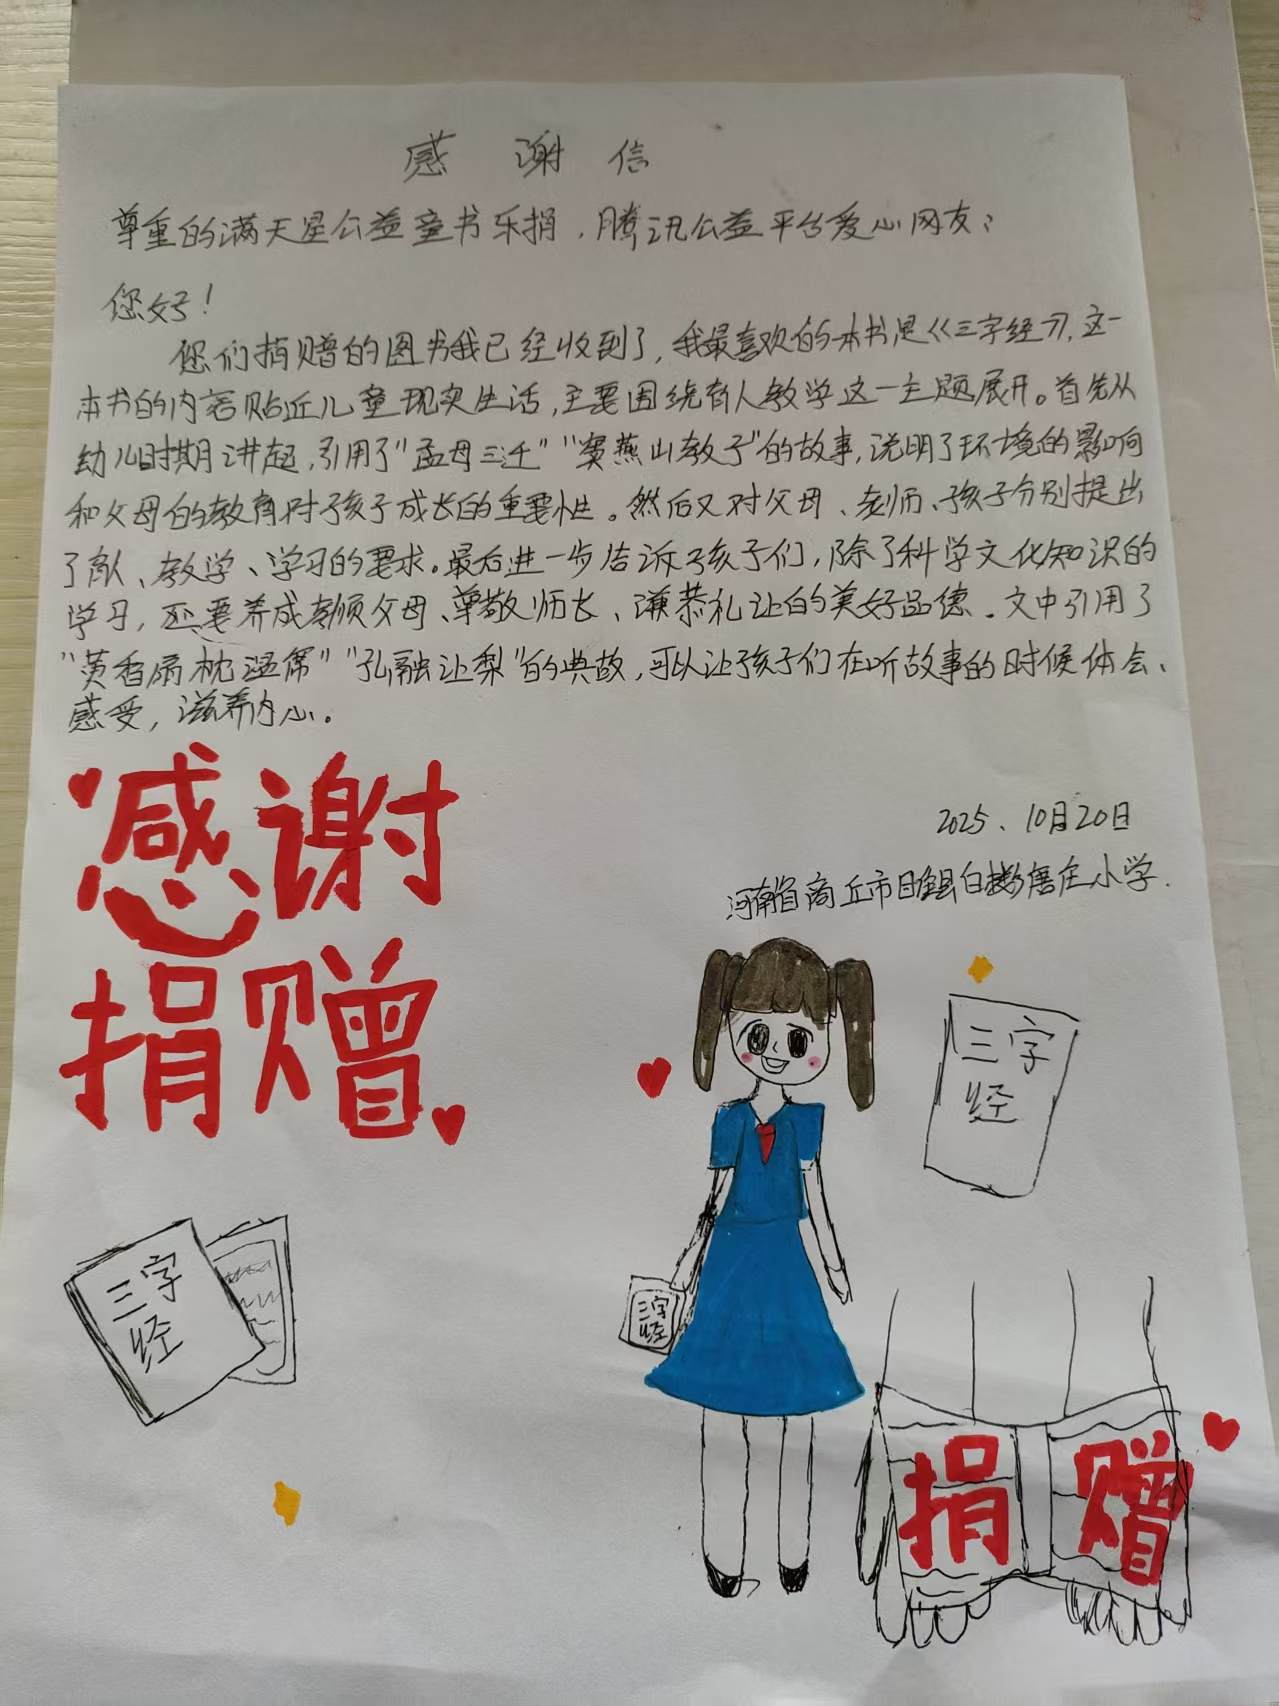 感 谢 信
尊重的满天星公益童书乐捐、腾讯公益平台爱心网友：
您好！
您们捐赠的图书我已经收到了，我最喜欢的一本书是《三字经》，这一
本书的内容贴近儿童现实生活，主要围绕育人教学这一主题展开。首先从
幼儿时期讲起，引用了“孟母三迁”“窦燕山教子”的故事，说明了环境的影响
和父母的教育对孩子成长的重要性。然后又对父母、老师、孩子分别提出
了 、教学、学习的要求。最后进一步告诉孩子们，除了科学文化知识的
学习，还要养成孝顺父母、尊敬师长、谦恭礼让的美好品德。文中引用了
“黄香扇枕温席”“孔融让梨”的典故，可以让孩子们在听故事的时候体会、
感受，滋养内心。
感谢
捐赠
2025、10月20日
河南省商丘市睢县白楼 唐庄小学.
三字
经
三字
经
三字
经
捐 赠